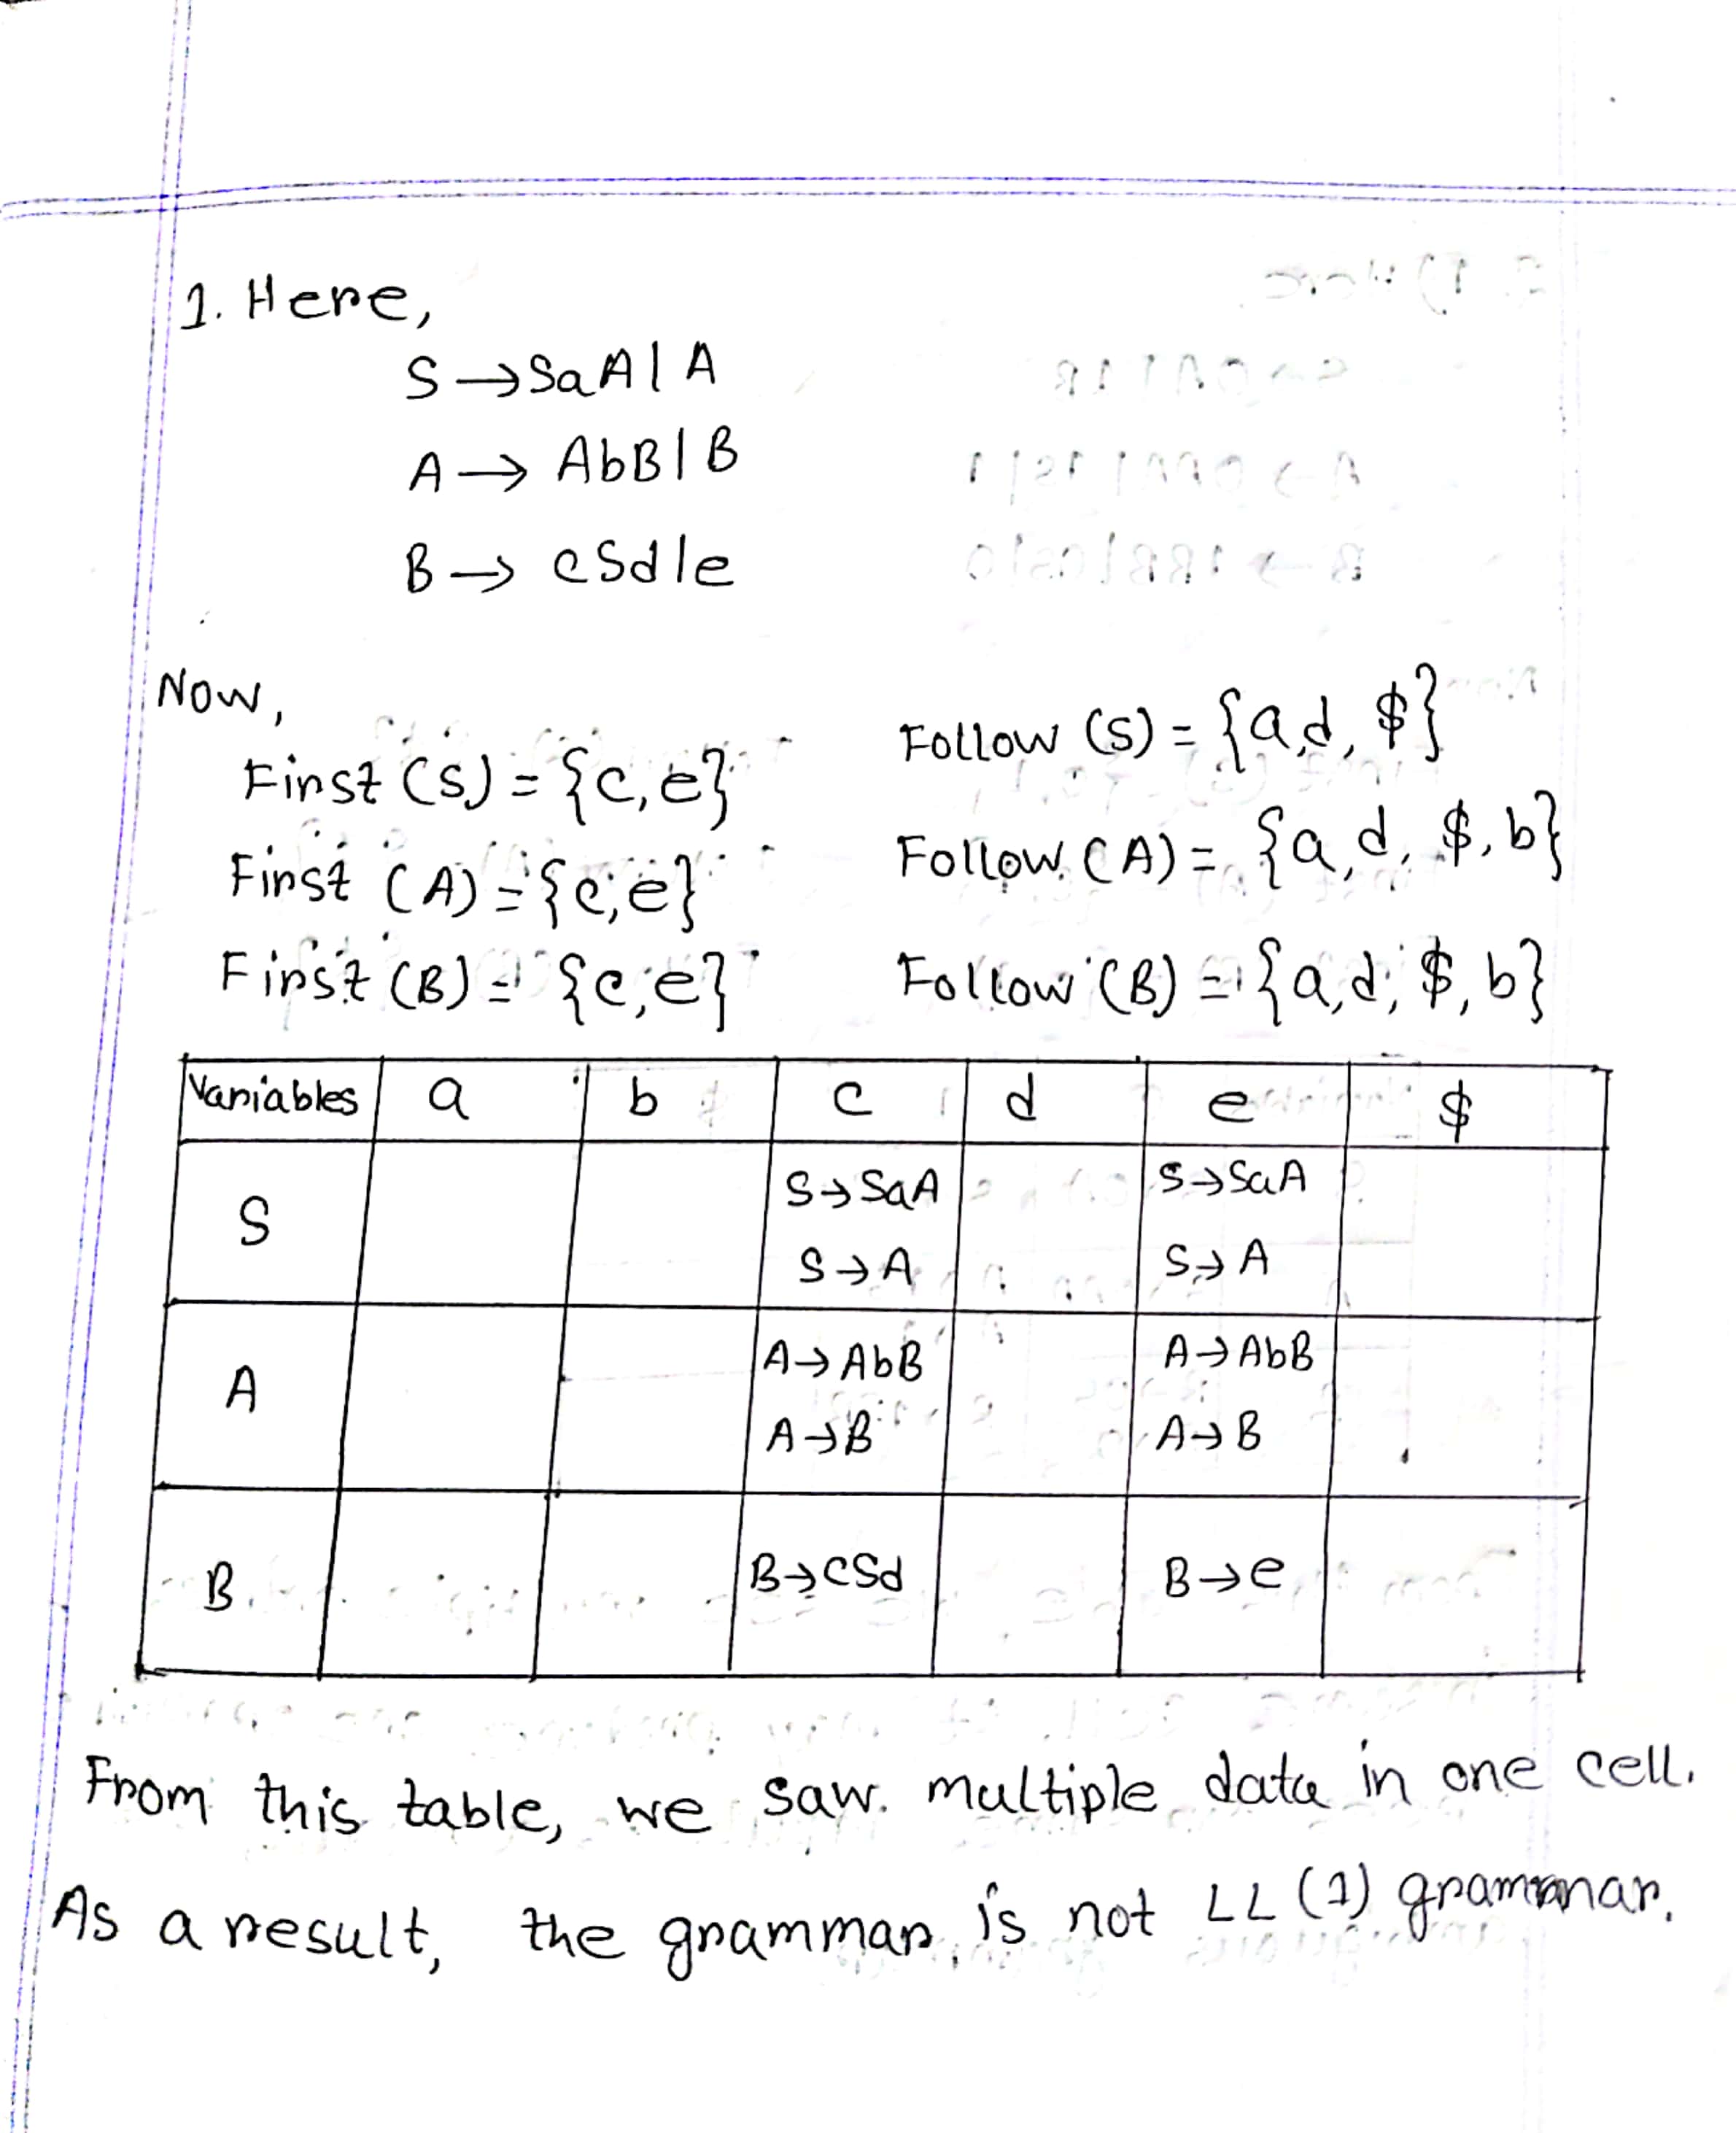 1. Here,
S → SaA | A
A → AbB | B
B → cSd | e
Now,
First (S) = {c, e}
First (A) = {c, e}
First (B) = {c, e}
Follow (S) = {a, d, $}
Follow (A) = {a, d, $, b}
Follow (B) = {a, d, $, b}
Variables a b c d e $
S S → SaA S → SaA
S → A S → A
A A → AbB A → AbB
A → B A → B
B B → cSd B → e
From this table, we saw multiple data in one cell.
As a result, the grammar is not LL (1) grammar.